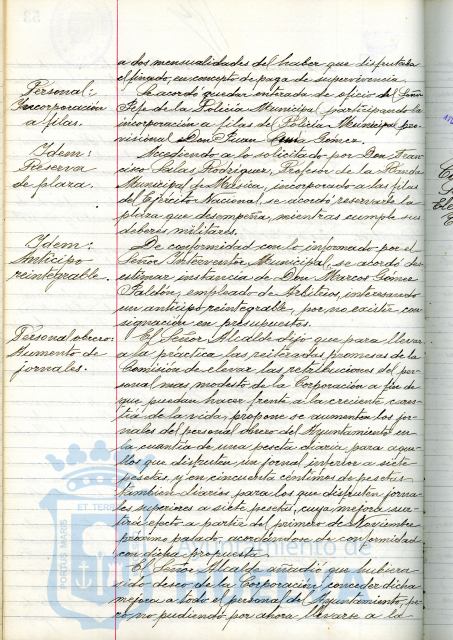 a dos mensualidades del haber que disfrutaba
el finado, en concepto de paga de supervivencia.
Personal:
Incorporación
a filas.
Se acordó quedar enterada de oficio del Señor
Jefe de la Policía Municipal, participando la
incorporación a filas del Policía Municipal pro-
visional Don Juan Gómez.
Idem:
Reserva
de plaza.
Accediendo a lo solicitado por Don Fran-
cisco Salas Rodríguez, Profesor de la Banda
Municipal de Música, incorporado a las filas
del Ejército Nacional, se acordó reservarle la
plaza que desempeña, mientras cumple sus
deberes militares.
Idem:
Anticipo
reintegrable.
De conformidad con lo informado por el
Señor Interventor Municipal, se acordó des-
estimar instancia de Don Marcos Gómez
Faldón, empleado de Arbitrios, interesando
un anticipo reintegrable, por no existir con-
signación en presupuestos.
Personal obrero:
Aumento de
jornales.
El Señor Alcalde dijo que para llevar
a la práctica las reiteradas promesas de la
Comisión de elevar las retribuciones del per-
sonal mas modesto de la Corporación a fin de
que puedan hacer frente a la creciente cares-
tía de la vida, propone se aumenten los jor-
nales del personal obrero del Ayuntamiento en
la cuantía de una peseta diaria, para aque-
llos que disfruten un jornal inferior a siete
pesetas, y en cincuenta céntimos de pesetas
tambien diarios para los que disfruten jorna-
les superiores a siete pesetas, cuya mejora sur-
tirá efecto a partir del primero de Noviembre
próximo pasado, acordándose de conformidad
con dicha propuesta.
El Señor Alcalde añadió que hubiera
sido deseo de la Corporación conceder dicha
mejora a todo el personal del Ayuntamiento, pe-
ro no pudiendo por ahora llevarse a la
PORTUS MARIS
ET TERRE
Ayuntamiento de